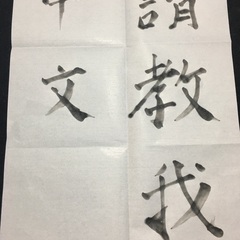 請教我
中文